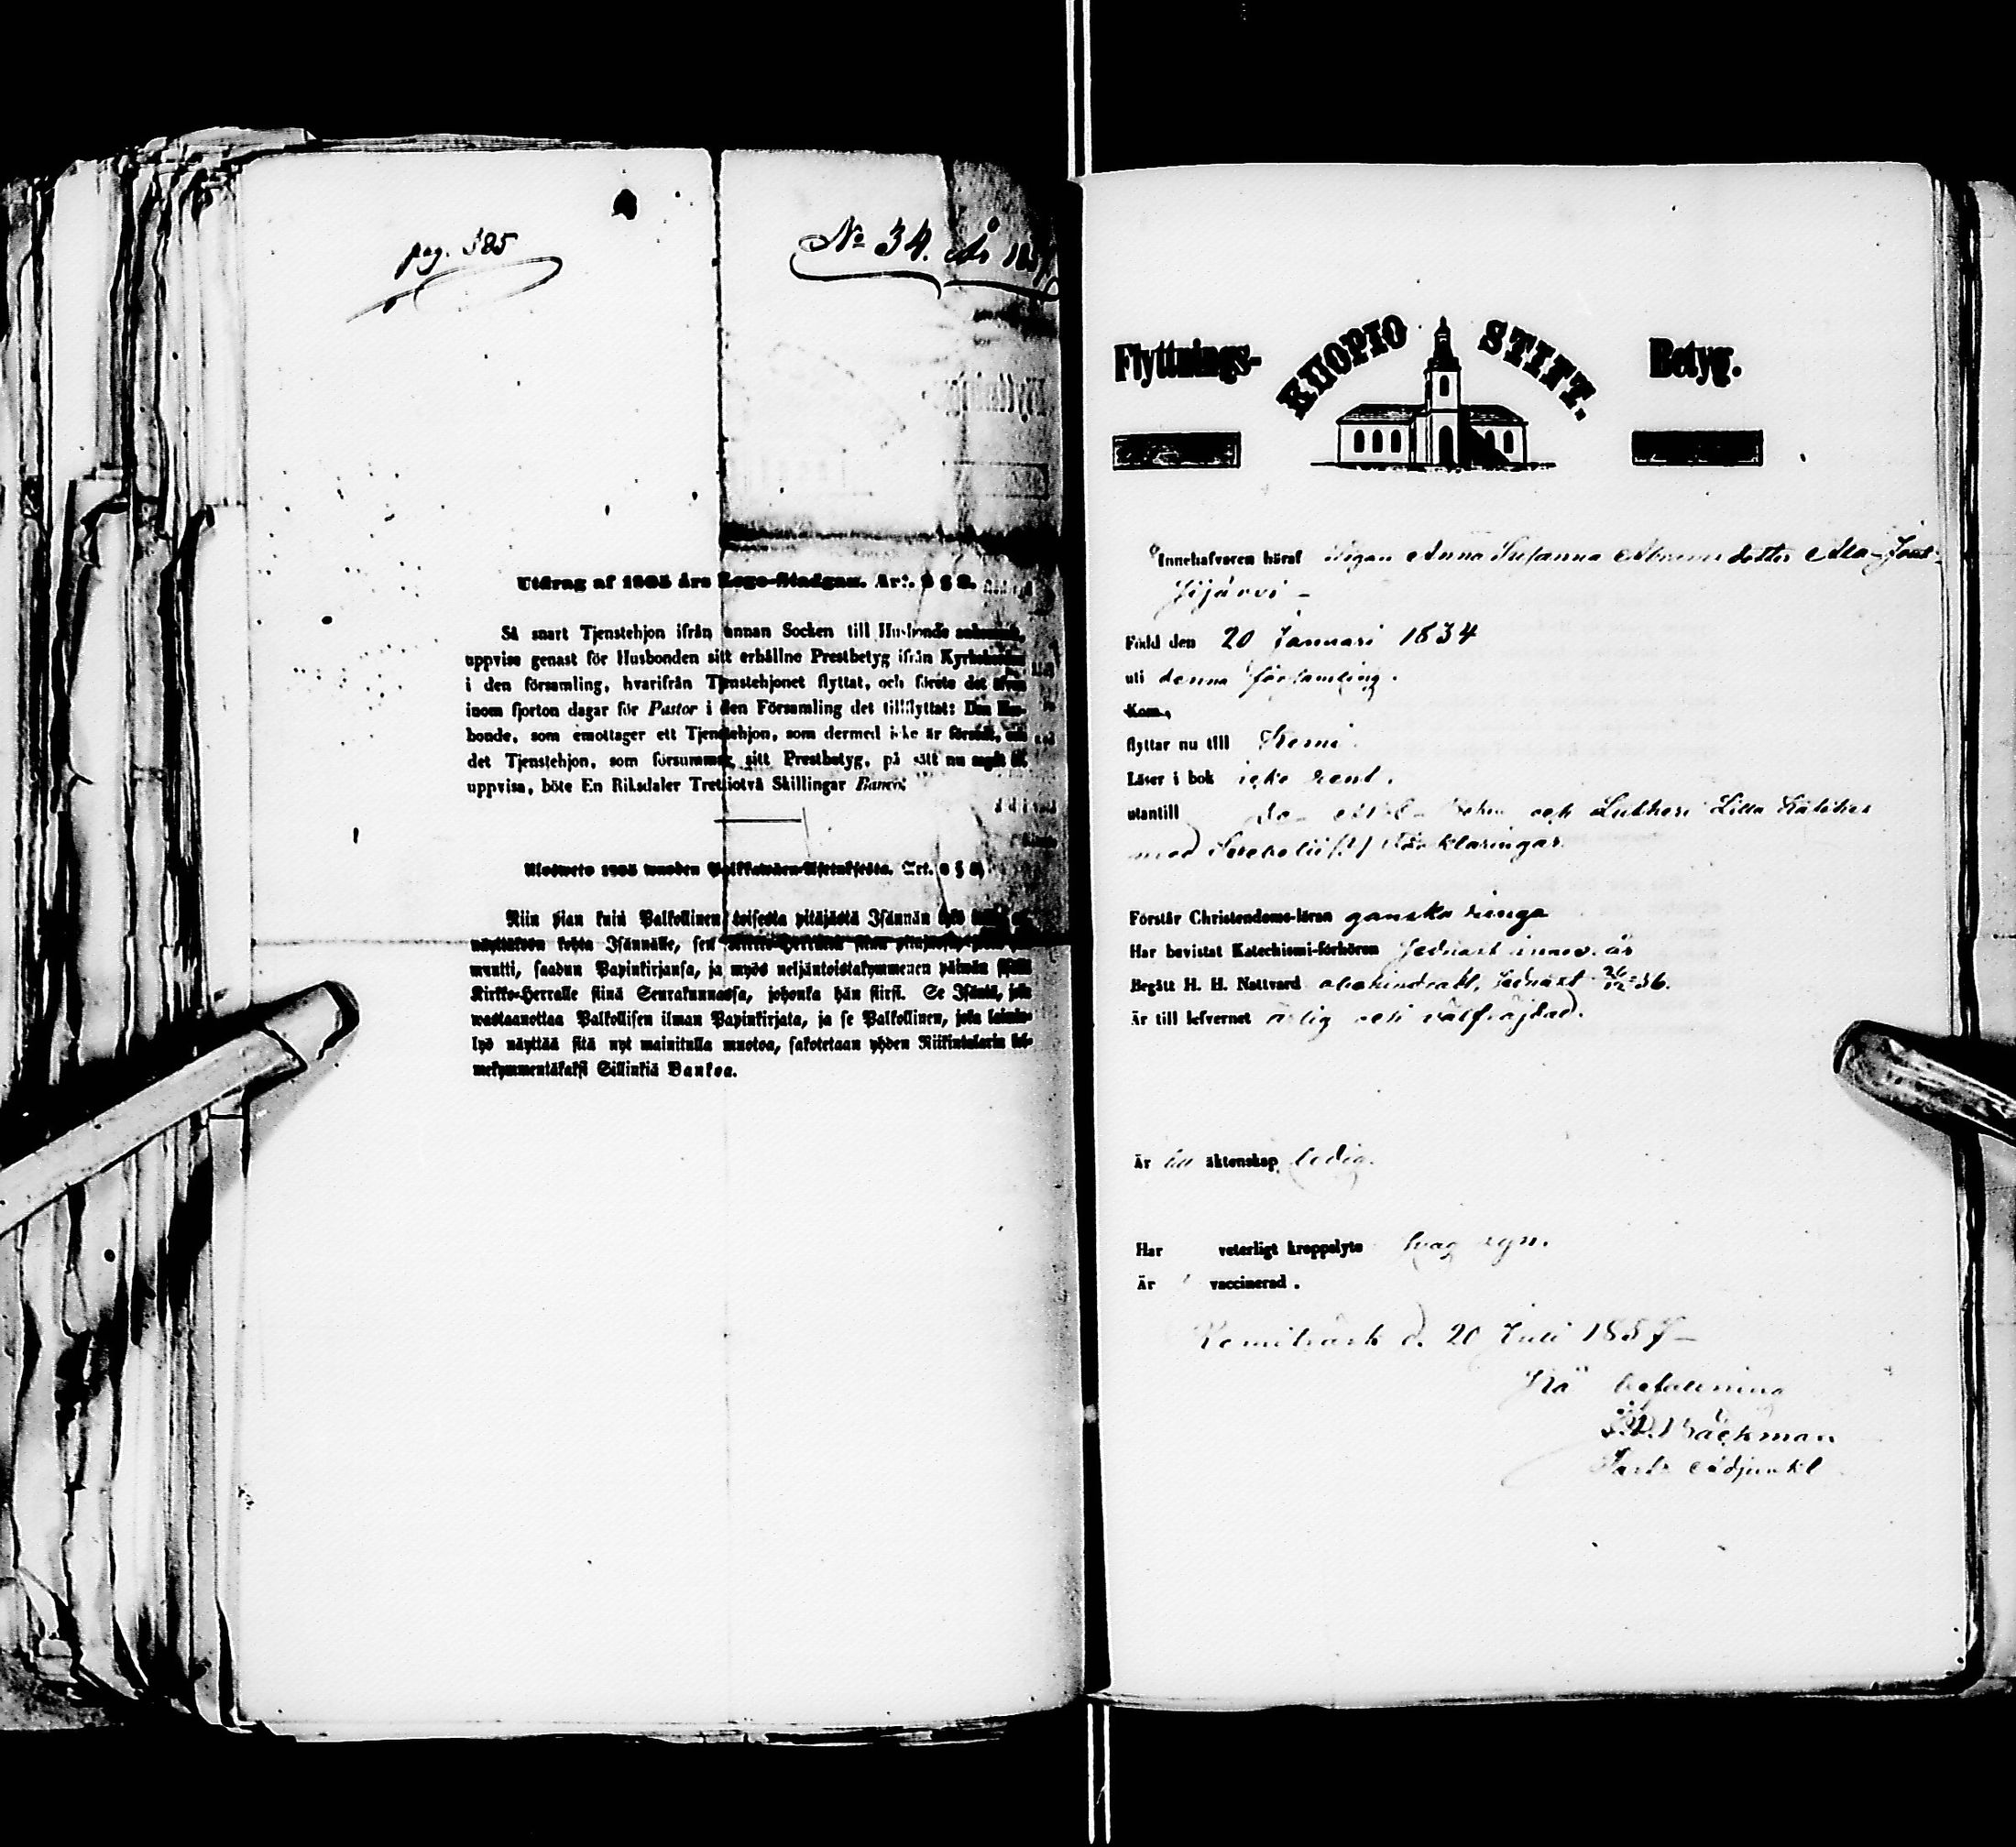 pag. 585
No 34. År 185
Utdrag af 1805 års Lego-Stadgan. Art. § 8.
Så snart Tjenstehjon ifrån annan Socken till Husbonde
uppvise genast för Husbonden sitt erhållne Prestbetyg ifrån
i den församling, hvarifrån Tjenstehjonet flyttat, och förete det
inom fjorton dagar för Pastor i den Församling det tillflyttat: Den Hus-
bonde, som emottager ett Tjenstehjon, som dermed icke är försedt, och
det Tjenstehjon, som försummar sitt Prestbetyg, på sätt nu sagdt är
uppvisa, böte En Riksdaler Trettiotvå Skillingar Banco.
Ulosweto 1805 wuoden Palkkawäen-Asetuksesta. Art. § 8.
Niin pian kuin Palkollinen toisesta pitäjästä Isännän
näyttäköön kohta Isännälle, sen
muutti, saadun Papinkirjansa, ja myös neljäntoistakymmenen päiwän
Kirkko-Herralle siinä Seurakunnassa, johonka hän siirsi. Se Isäntä, joka
wastaanottaa Palkollisen ilman Papinkirjata, ja se Palkollinen, joka laimin-
lyö näyttää sitä nyt mainitulla muotoa, sakotetaan yhden Riikintalarin kol-
mekymmentäkaksi Sillinkiä Bankoa.
Flyttnings- KUOPIO STIFT. Betyg.
Innehafvaren häraf Pigan Anna Susanna dotter Ala-
jijärvi -
Född den 20 Januari 1834
uti denna församling.
Kom.,
flyttar nu till Kemi.
Läser i bok icke rent.
utantill och Lutheri Lilla Kateches
med förklaringar.
Förstår Christendoms-läran ganska ringa
Har bevistat Katechismi-förhören sednast innev. år
Begått H. H. Nattvard obehindradt, sednast 26/12 56.
Är till lefvernet ärlig och välfräjdad.
Är till äktenskap ledig.
Har veterligt kroppslyte svag syn.
Är vaccinerad.
Kemiträsk d. 20 Juli 1857 -
På befallning
Bäckman
Past. Adjunkt